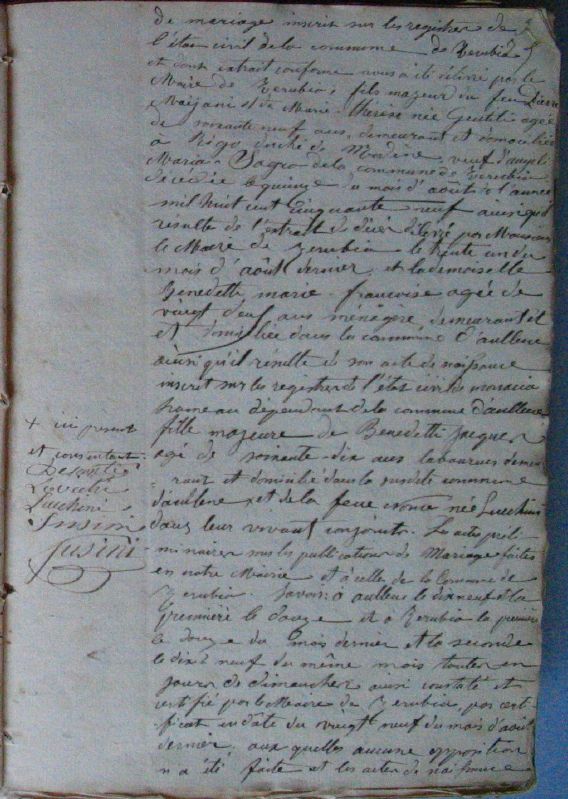 de mariage inscrit sur les registres de
l'état civil de la commune de Zerubia
et dont extrait conforme nous a été délivré par le
Maire de Zerubia, fils majeur du feu Pierre
et de Marie Thérèse née Gentili agée
de soixante neuf ans, demeurant et domicilié
à de Modène, veuf d'
Maria de la commune de Zerubia
décédée le quinze du mois d'aout de l'année
mil huit cent cinquante neuf ainsi qu'il
résulte de l'extrait de décès délivré par Monsieur
le Maire de Zerubia le trente un du
mois d'août dernier, et la demoiselle
Benedetti marie françoise agée de
vingt deux ans ménagère, demeurant et
et domiciliée dans la commune d'aullene
ainsi qu'il résulte de son acte de naissance
inscrit sur les registres de l'état civil de
hameau dépendant de la commune d'aullene
fille majeure de Benedetti Jacques
agé de soixante-dix ans laboureur demeu
rant et domicilié dans la susdite commune
d'aullene + et de la feue née Lucchini
dans leur vivant conjoints. Les actes préli
minaires sont les publications de Mariage faites
en notre Mairie et à celles de la Commune de
Zerubia. Savoir: à aullene le dix neuf et la
première le douze et a Zerubia la première
le douze du mois dernier et la seconde
le dix neuf du même mois toutes en
jours de dimanches ainsi constaté et
certifié par le Maire de Zerubia, par certi
ficat en date du vingt neuf du mois d'août
dernier, aux quelles aucune opposition
n'a été faite et les actes de naissance
+ ici présent
et consentant.
Lucchini
Susini
Susini